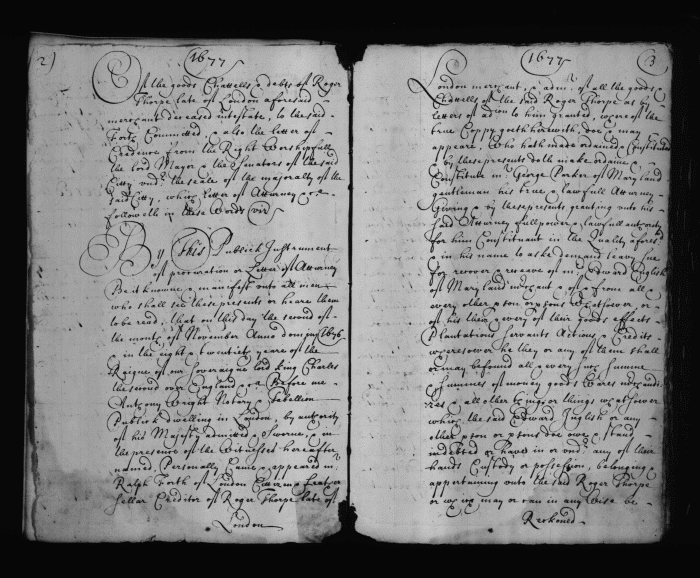 2)
1677
Of the goods Chattells & debts of Roger
Thorpe late of London aforesaid
merchant deceased intestate, to the said
Forth Committed, & also the letter of
Credence from the Right Worshipfull
the lord Mayor & the Senators of the said
Citty under the seale of the majoralty of the
said Citty, which letter of Attorney &c
followeth in these Words (viz)
By This Publick Instrument
of procuration or Letter of Attorney
Be it knowne & manifest unto all men
who shall see these presents or heare them
to be read, that on this day the second of
the month of November Anno domini 1676
& in the eight & twentieth yeare of the
Reigne of our Soveraigne lord King Charles
the second over England &c Before me
Anthony Wright Notary & Tabellion
Publick dwelling in London, by authority
of his Majesty admitted & Sworne, & in
the presence of the Witnesses hereafter
named, Personally Came & appeared mr
Ralph Forth of London
Sellar Creditor of Roger Thorpe late of
London
1677
3
London merchant, & admr of all the goods &
Chattells of the said Roger Thorpe as by
letters of admon to him granted, whereof the
true Coppy goeth herewith, doe & may
appeare, Who hath made ordained & Constituted
& by these presents doth make ordaine &
Constitute mr George Parker of Maryland
gentleman his true & lawfull Attorney
Giving & by these presents granting unto his
said Attorney full power & lawfull authority
for him Constituant in the Quality aforesd
& in his name to aske demand leavy sue
for recover & receive of mr Edward English
of Maryland merchant & of & from all &
every other pson or psons whatsoever, or
of his their & every of their goods effects
Plantations Servants Actions & Credits
wheresoever he they or any of them shall
or may be found all & every such summe
& summes of money goods Wares merchandi
zes & all other things or things whatsoever
which the said Edward English or any
other pson or psons doe owe & stand
indebted or have in or under any of their
hands Custody or possession, belonging &
appertaining unto the said Roger Thorpe
or which may or can in any Wise be
Reckoned